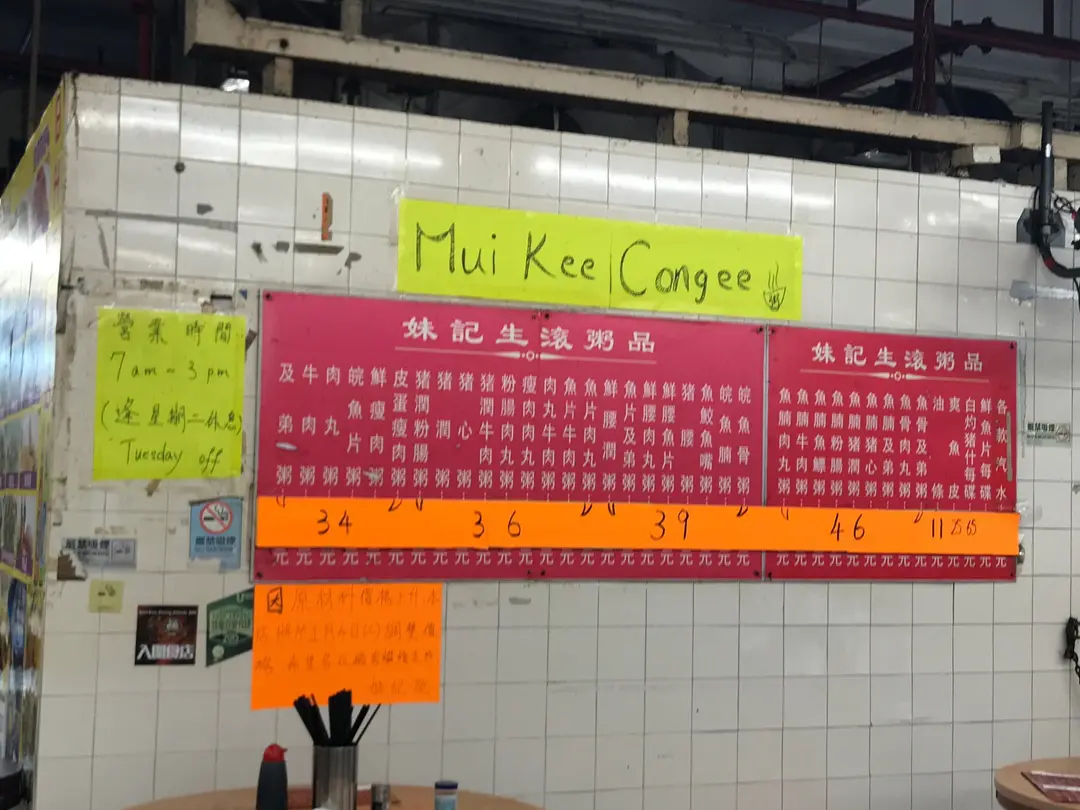 Mui Kee Congee
營業時間
7am - 3pm
(逢星期二休息)
Tuesday off
妹記生滾粥品
及弟粥
牛肉粥
肉丸粥
皖魚片粥
鮮瘦肉粥
皮蛋瘦肉粥
豬潤粉腸粥
豬潤粥
豬心粥
豬潤牛肉粥
粉腸肉丸粥
瘦肉肉丸粥
魚片肉丸粥
魚片牛肉粥
鮮腰潤粥
魚片及弟粥
鮮腰肉丸粥
鮮腰魚片粥
豬腰粥
魚鮫魚嘴粥
皖魚腩粥
皖魚骨粥
34
36
39
元元元元元元元元元元元元元元元元元元元元元元
妹記生滾粥品
魚腩肉丸粥
魚腩牛肉粥
魚腩魚鰾粥
魚腩粉腸粥
魚腩豬潤粥
魚腩豬心粥
魚腩及弟粥
魚骨肉丸粥
魚骨及弟粥
油條
爽魚皮
白灼豬什每碟
鮮魚片每碟
各款汽水
46
11
25
65
元元元元元元元元元元元元元元
嚴禁吸煙
嚴禁吸煙
入閘食店